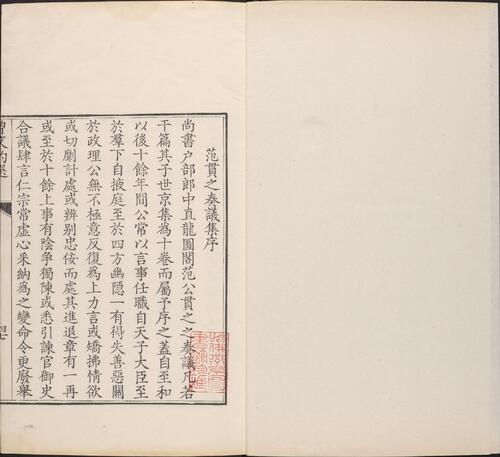 范貫之奏議集序
尚書户部郎中直龍圖閣范公貫之之奏議凡若
干篇其子世京集為十卷而屬予序之蓋自至和
以後十餘年間公常以言事任職自天子大臣至
於羣下自掖庭至於四方幽隱一有得失善惡關
於政理公無不極意反復為上力言或矯拂情欲
或切劘計處或辨别忠佞而處其進退章有一再
或至於十餘上事有陰争獨陳或悉引諫官御史
合議肆言仁宗常虚心采納為之變命令更廢舉
曾文約選